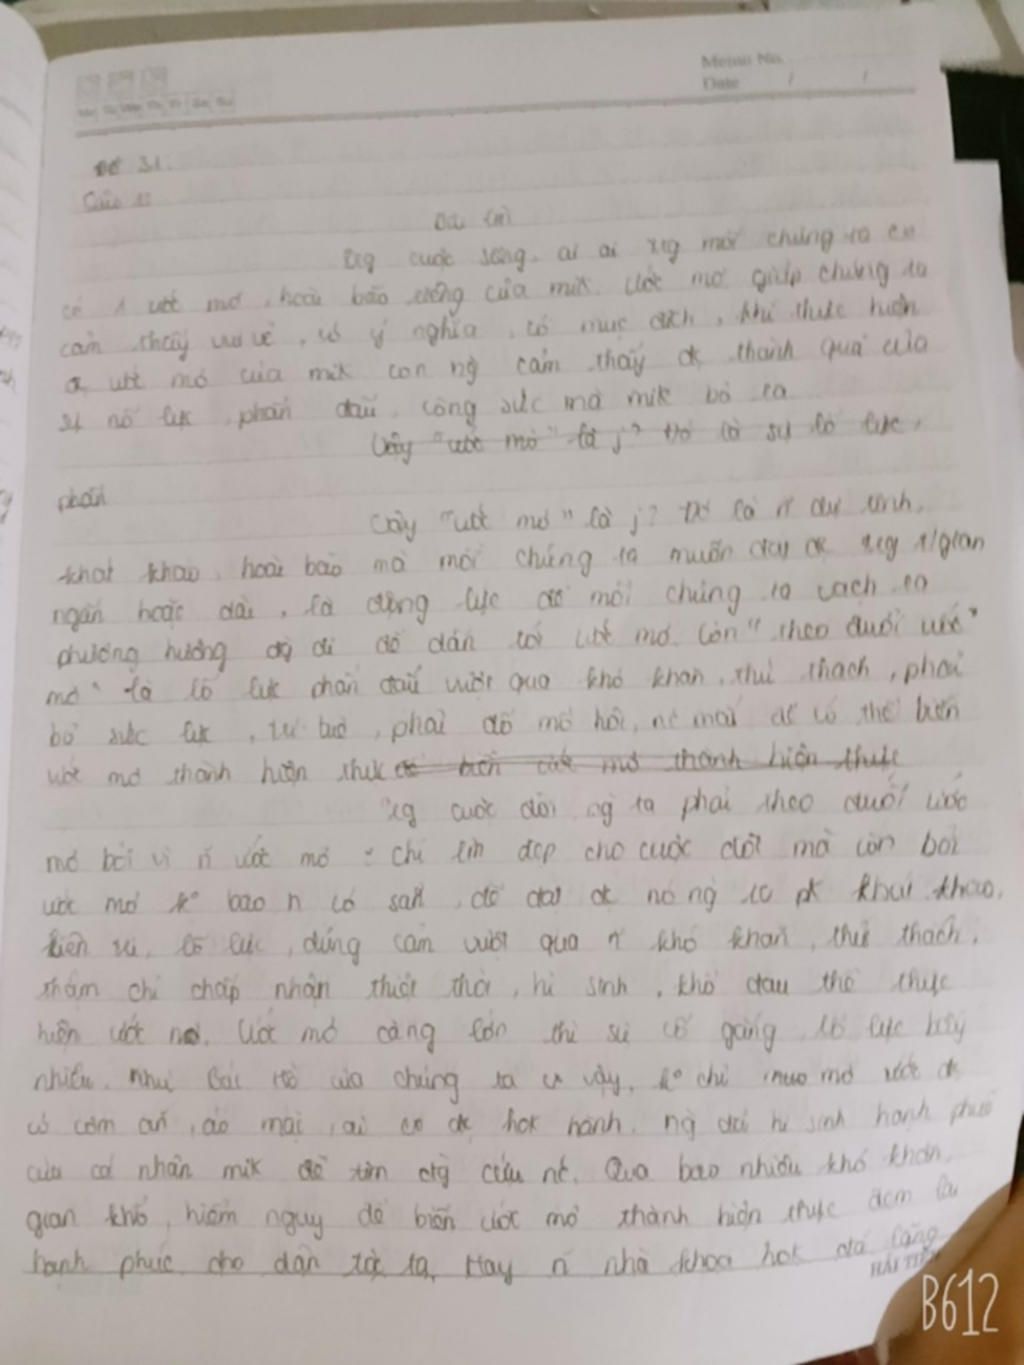 Memo No.
Date / /
Đề 31.
Câu 1:
Bài làm
trg cuộc sống, ai ai trg mỗi chúng ta cx
có 1 ước mơ, hoài bão riêng của mik. Ước mơ giúp chúng ta
cảm thấy vui vẻ, có ý nghĩa, có mục đích, khi thực hiện
đc ước mơ của mik con ng cảm thấy đc thành quả của
sự nỗ lực, phấn đấu, công sức mà mik bỏ ra
Vậy "ước mơ" là j? Đó là sự lỗ lực,
phấn
Vậy "ước mơ" là j? Đó là n~ dự tính,
khat khao, hoài bão mà mỗi chúng ta muốn đạt đc trg t/gian
ngắn hoặc dài, là động lực để mỗi chúng ta vạch ra
phương hướng đi để dẫn tới ước mơ. Còn "theo đuổi ước
mơ" là lỗ lực phấn đấu vượt qua khó khăn, thử thách, phải
bỏ sức lực, phải đổ mồ hôi, để có thể biến
ước mơ thành hiện thực để biến ước mơ thành hiện thực
trg cuộc đời ng ta phải theo đuổi ước
mơ bởi vì n~ ước mơ chỉ đẹp cho cuộc đời mà còn bởi
ước mơ ko bao h có sẵn, để đạt đc nó ng ta pk khát khao,
kiên trì, lỗ lực, dũng cảm vượt qua n~ khó khăn, thử thách,
thậm chí chấp nhận thiệt thòi, hi sinh, khổ đau thể thực
hiện ước mơ. Ước mơ càng lớn thì sự cố gắng, lỗ lực bấy
nhiêu. Như Bác Hồ của chúng ta vậy, ko chỉ mơ ước đc
có cơm ăn, áo mặc, ai cx đc hok hành. ng đã hi sinh hạnh phúc
của cá nhân mik để tìm đg cứu nc. Qua bao nhiêu khó khăn,
gian khổ, hiểm nguy để biến ước mơ thành hiện thực đem lại
hạnh phúc cho dân tộc ta. Hay n~ nhà khoa hok đã
HẢI TIẾN
B612